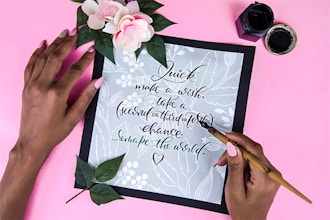 Quick
make a wish,
take a
(second or third or forth)
chance.
remake the world.